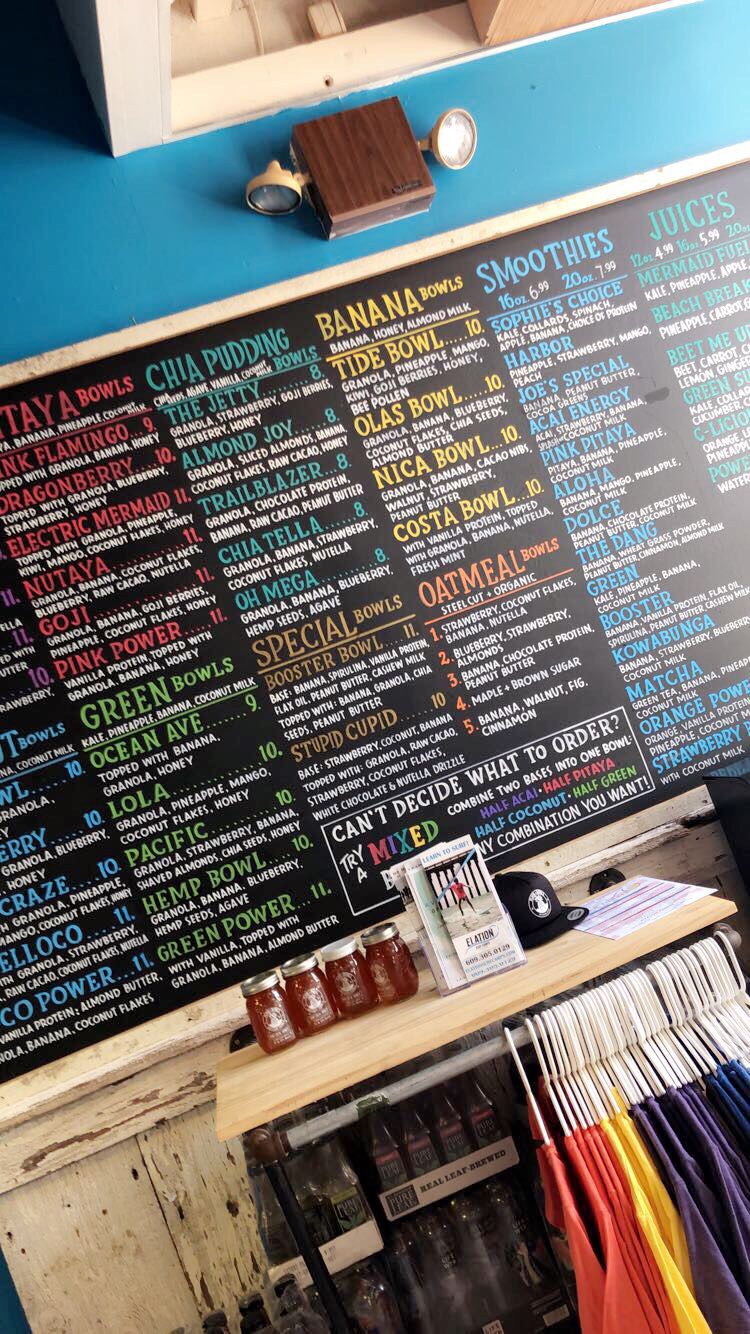 TAYA BOWLS
BANANA, PINEAPPLE, COCONUT MILK
INK FLAMINGO.. 9.
TOPPED WITH GRANOLA, BANANA, HONEY
DRAGONBERRY... 10.
TOPPED WITH GRANOLA, BLUEBERRY,
STRAWBERRY, HONEY
ELECTRIC MERMAID 11.
TOPPED WITH GRANOLA, PINEAPPLE,
KIWI, MANGO, COCONUT FLAKES, HONEY
NUTAYA.......... 11.
GRANOLA, BANANA, COCONUT FLAKES,
BLUEBERRY, RAW CACAO, NUTELLA
GOJI............. 11.
GRANOLA, BANANA, GOJI BERRIES,
PINEAPPLE, COCONUT FLAKES, HONEY
PINK POWER..... 11.
VANILLA PROTEIN, TOPPED WITH
GRANOLA, BANANA, HONEY
GREEN BOWLS
KALE, PINEAPPLE, BANANA, COCONUT MILK
OCEAN AVE....... 9.
TOPPED WITH BANANA,
GRANOLA, HONEY
LOLA............. 10.
GRANOLA, PINEAPPLE, MANGO,
COCONUT FLAKES, HONEY
PACIFIC.......... 10.
GRANOLA, STRAWBERRY, BANANA,
SHAVED ALMONDS, CHIA SEEDS, HONEY
HEMP BOWL...... 10.
GRANOLA, BANANA, BLUEBERRY,
HEMP SEEDS, AGAVE
GREEN POWER.... 11.
WITH VANILLA, TOPPED WITH
GRANOLA, BANANA, ALMOND BUTTER
UT BOWLS
COCONUT MILK
WL... 10.
GRANOLA,
ERRY.. 10.
GRANOLA, BLUEBERRY,
HONEY
CRAZE... 10.
GRANOLA, PINEAPPLE,
MANGO, COCONUT FLAKES, HONEY
ELLOCO.... 11.
GRANOLA, STRAWBERRY,
RAW CACAO, COCONUT FLAKES, NUTELLA
CO POWER... 11.
VANILLA PROTEIN, ALMOND BUTTER
NOLA, BANANA, COCONUT FLAKES
CHIA PUDDING
BOWLS
CHIA SEEDS, AGAVE, VANILLA, COCONUT
THE JETTY...... 8.
GRANOLA, STRAWBERRY, GOJI BERRIES,
BLUEBERRY, HONEY
ALMOND JOY.... 8.
GRANOLA, SLICED ALMONDS, BANANA,
COCONUT FLAKES, RAW CACAO, HONEY
TRAILBLAZER... 8.
GRANOLA, CHOCOLATE PROTEIN,
BANANA, RAW CACAO, PEANUT BUTTER
CHIA TELLA..... 8.
GRANOLA, BANANA, STRAWBERRY,
COCONUT FLAKES, NUTELLA
OH MEGA....... 8.
GRANOLA, BANANA, BLUEBERRY,
HEMP SEEDS, AGAVE
SPECIAL BOWLS
BOOSTER BOWL.. 11.
BASE: BANANA, SPIRULINA, VANILLA PROTEIN,
FLAX OIL, PEANUT BUTTER, CASHEW MILK
TOPPED WITH: BANANA, GRANOLA, CHIA
SEEDS, PEANUT BUTTER
STUPID CUPID.... 10
BASE: STRAWBERRY, COCONUT, BANANA
TOPPED WITH: GRANOLA, RAW CACAO,
STRAWBERRY, COCONUT FLAKES,
WHITE CHOCOLATE & NUTELLA DRIZZLE
BANANA BOWLS
BANANA, HONEY, ALMOND MILK
TIDE BOWL..... 10.
GRANOLA, PINEAPPLE, MANGO,
KIWI, GOJI BERRIES, HONEY,
BEE POLLEN
OLAS BOWL.... 10.
GRANOLA, BANANA, BLUEBERRY,
COCONUT FLAKES, CHIA SEEDS,
ALMOND BUTTER
NICA BOWL.... 10.
GRANOLA, BANANA, CACAO NIBS,
WALNUT, STRAWBERRY,
PEANUT BUTTER
COSTA BOWL... 10.
WITH VANILLA PROTEIN, TOPPED
WITH GRANOLA, BANANA, NUTELLA,
FRESH MINT
OATMEAL BOWLS
STEEL CUT + ORGANIC
1. STRAWBERRY, COCONUT FLAKES,
BANANA, NUTELLA
2. BLUEBERRY, STRAWBERRY,
ALMONDS
3. BANANA, CHOCOLATE PROTEIN,
PEANUT BUTTER
4. MAPLE + BROWN SUGAR
5. BANANA, WALNUT, FIG,
CINNAMON
CAN'T DECIDE WHAT TO ORDER?
TRY A MIXED
COMBINE TWO BASES INTO ONE BOWL
HALF ACAI • HALF PITAYA
HALF COCONUT • HALF GREEN
NY COMBINATION YOU WANT!
SMOOTHIES
16oz. 6.99 20oz. 7.99
SOPHIE'S CHOICE
KALE, COLLARDS, SPINACH,
APPLE, BANANA, CHOICE OF PROTEIN
HARBOR
PINEAPPLE, STRAWBERRY, MANGO,
PEACH
JOE'S SPECIAL
BANANA, PEANUT BUTTER,
COCOA GREENS
ACAI ENERGY
ACAI, STRAWBERRY, BANANA,
COCONUT MILK
PINK PITAYA
PITAYA, BANANA, PINEAPPLE,
COCONUT MILK
ALOHA
BANANA, MANGO, PINEAPPLE,
COCONUT MILK
DOLCE
BANANA, CHOCOLATE PROTEIN,
PEANUT BUTTER, COCONUT MILK
THE DANG
BANANA, WHEAT GRASS POWDER,
PEANUT BUTTER, CINNAMON, ALMOND MILK
GREEN
KALE, PINEAPPLE, BANANA,
COCONUT MILK
BOOSTER
BANANA, VANILLA PROTEIN, FLAX OIL,
SPIRULINA, PEANUT BUTTER, CASHEW MILK
KOWABUNGA
BANANA, STRAWBERRY, BLUEBERRY
COCONUT MILK
MATCHA
GREEN TEA, BANANA, PINEAPPLE
COCONUT MILK
ORANGE POWE
ORANGE, VANILLA PROTEIN
PINEAPPLE, COCONUT M
STRAWBERRY
WITH COCONUT MILK
JUICES
12oz 4.99 16oz 5.99 20oz
MERMAID FUEL
KALE, PINEAPPLE, APPLE,
BEACH BREA
PINEAPPLE, CARROT, G
BEET ME U
BEET, CARROT, C
LEMON, GINGER
GREEN SU
KALE, COLLA
COCONUT
C-LICIO
ORANGE,
PINEAPP
POWE
WATER
LEARN TO SURF!
ELATION
609.305.0129
REAL LEAF-BREWED
PURE LEAF